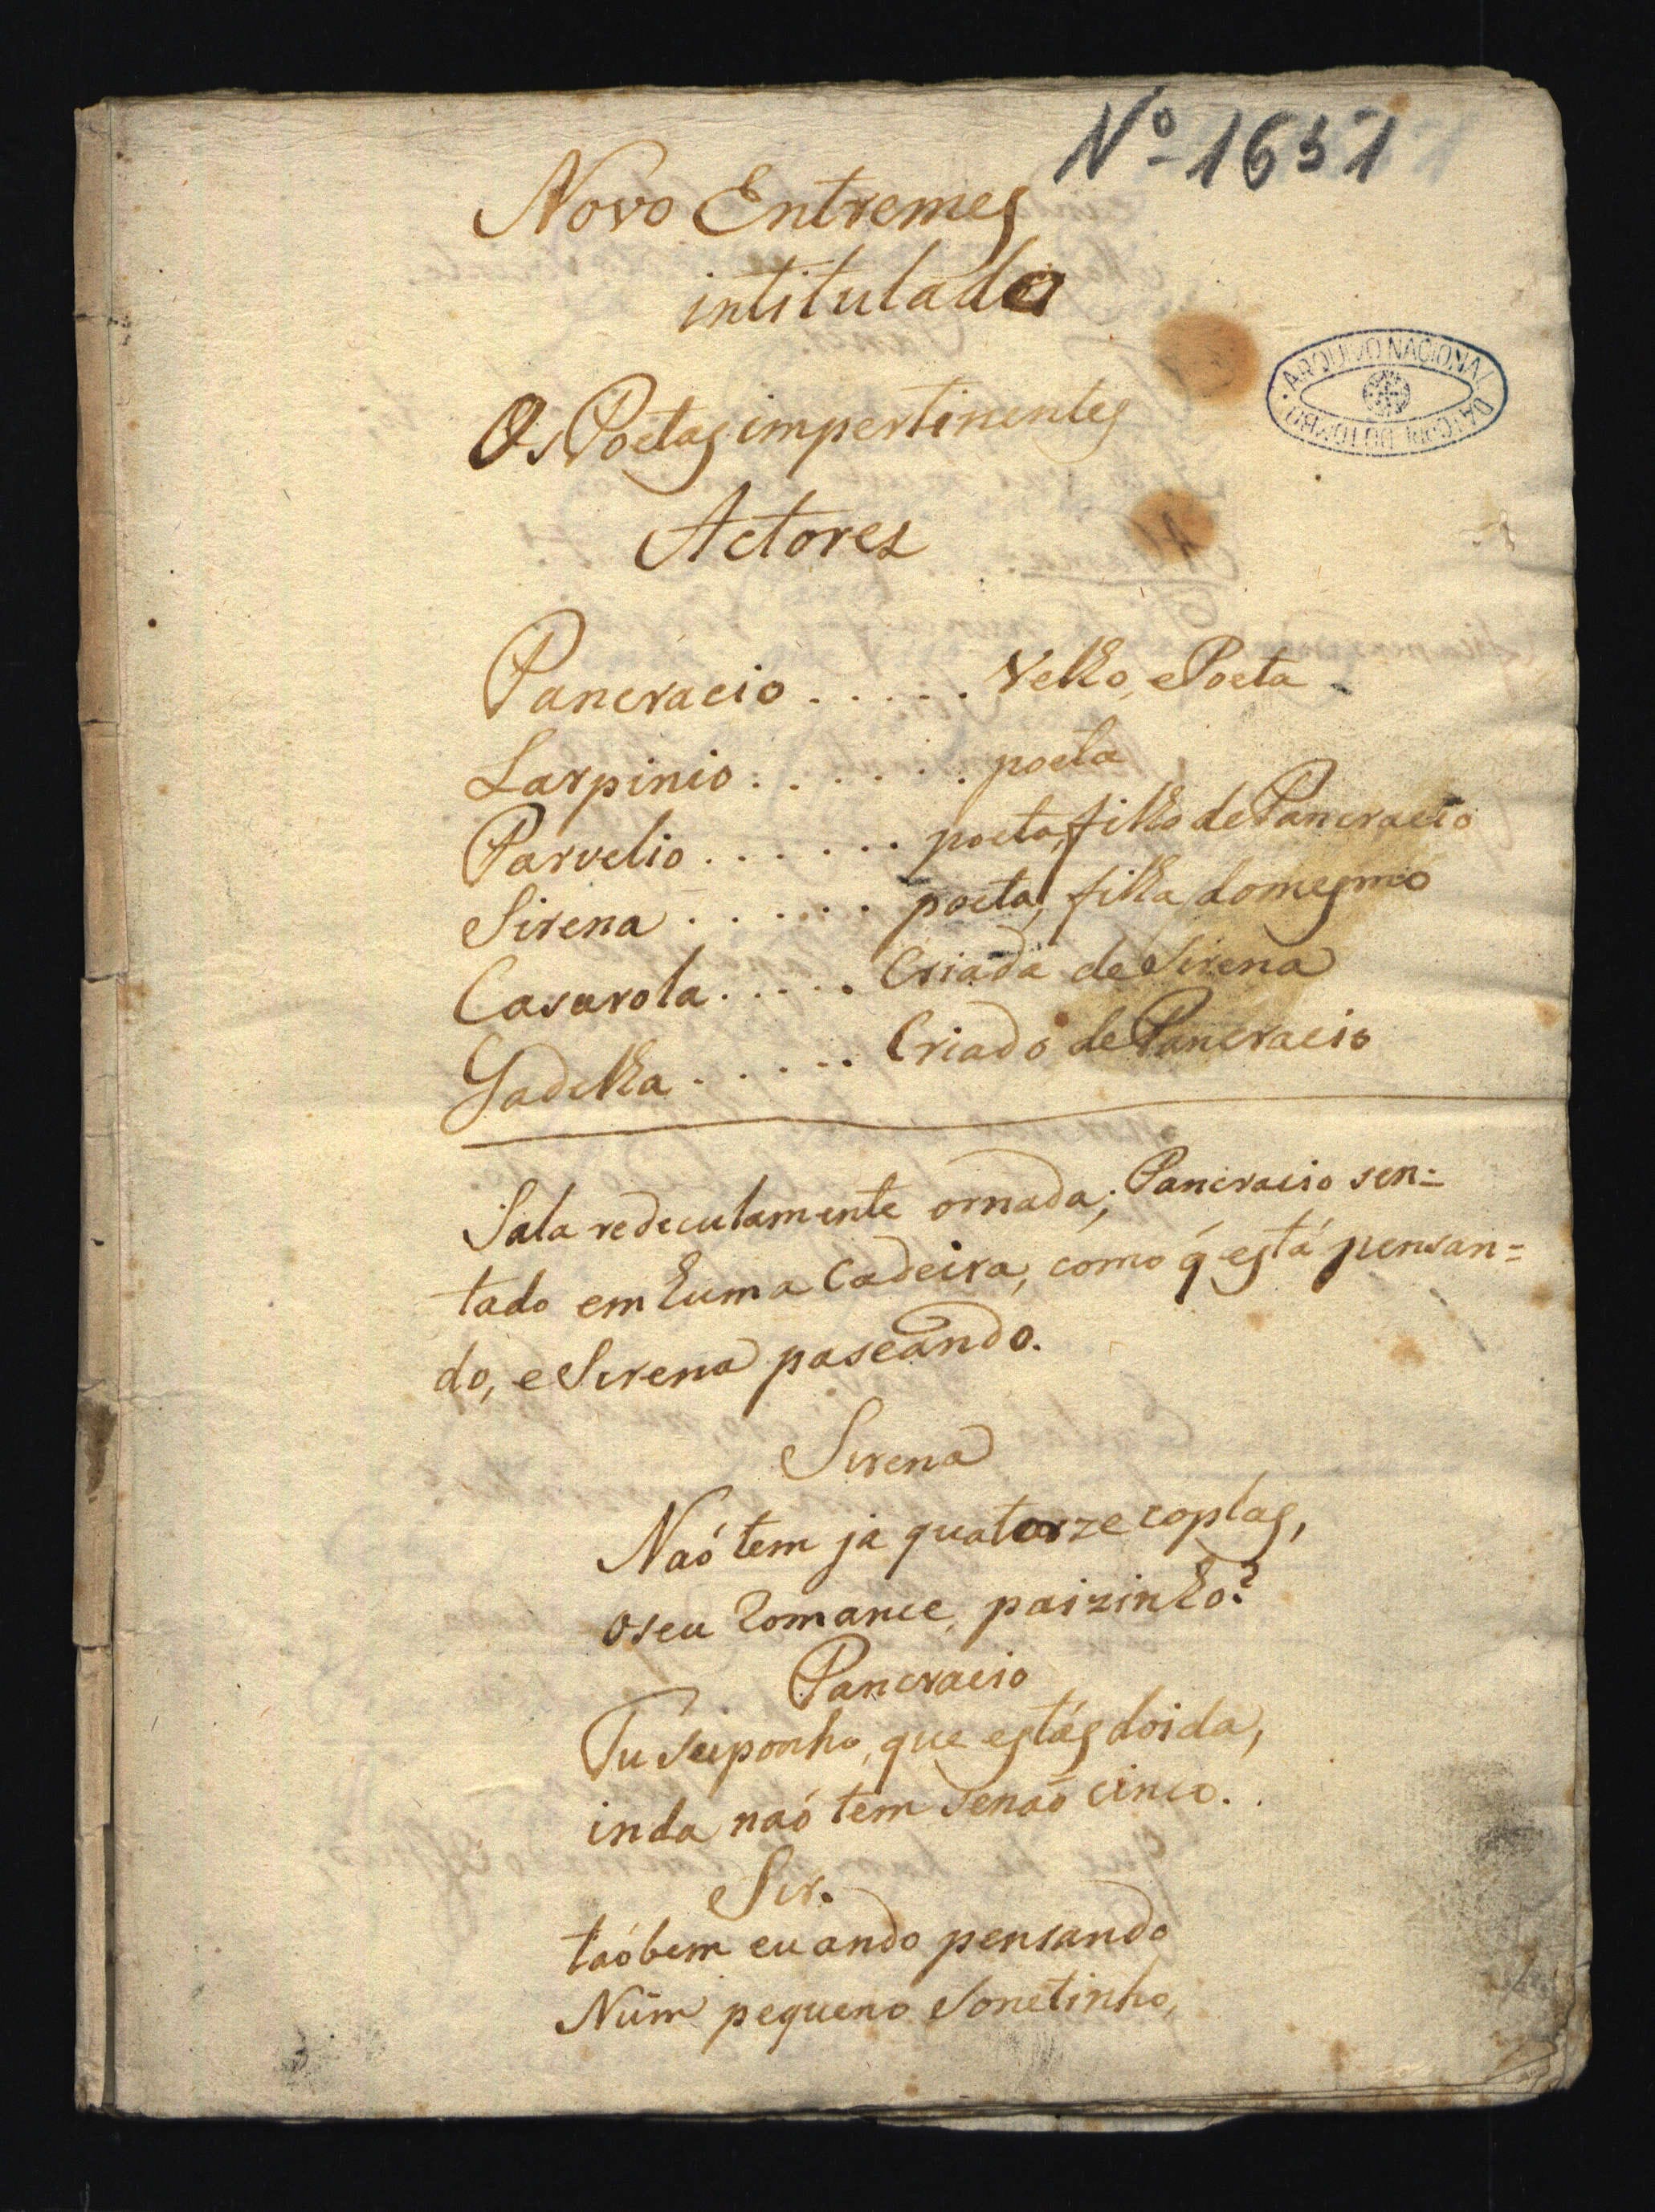 Nº 1651
Novo Entremes
intitulado
ARQUIVO NACIONAL DA TORRE DO TOMBO
Os Poetas impertinentes
Actores
Pancracio . . . . . Velho, e Poeta
Larpinio . . . . . . poeta
Parvelio . . . . . . poeta, filho de Pancracio
Sirena . . . . . . poeta, filha do mesmo
Casarola . . . . . Criada de Sirena
Gadelha . . . . . Criado de Pancracio
Sala redeculamente ornada; Pancracio sen=
tado em huma Cadeira, como q̃ está pensan=
do, e Sirena paseando.
Sirena
Naó tem ja quatorze coplas,
o seu Romance, paizinho?
Pancracio
Tu suponho, que estás doida,
inda naó tem senaó cinco.
Sir.
taóbem eu ando pensando
Nũm pequeno Sonetinho,